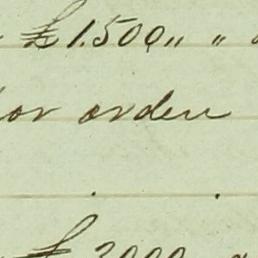 £ 1.500,, "
por orden
£ 2000